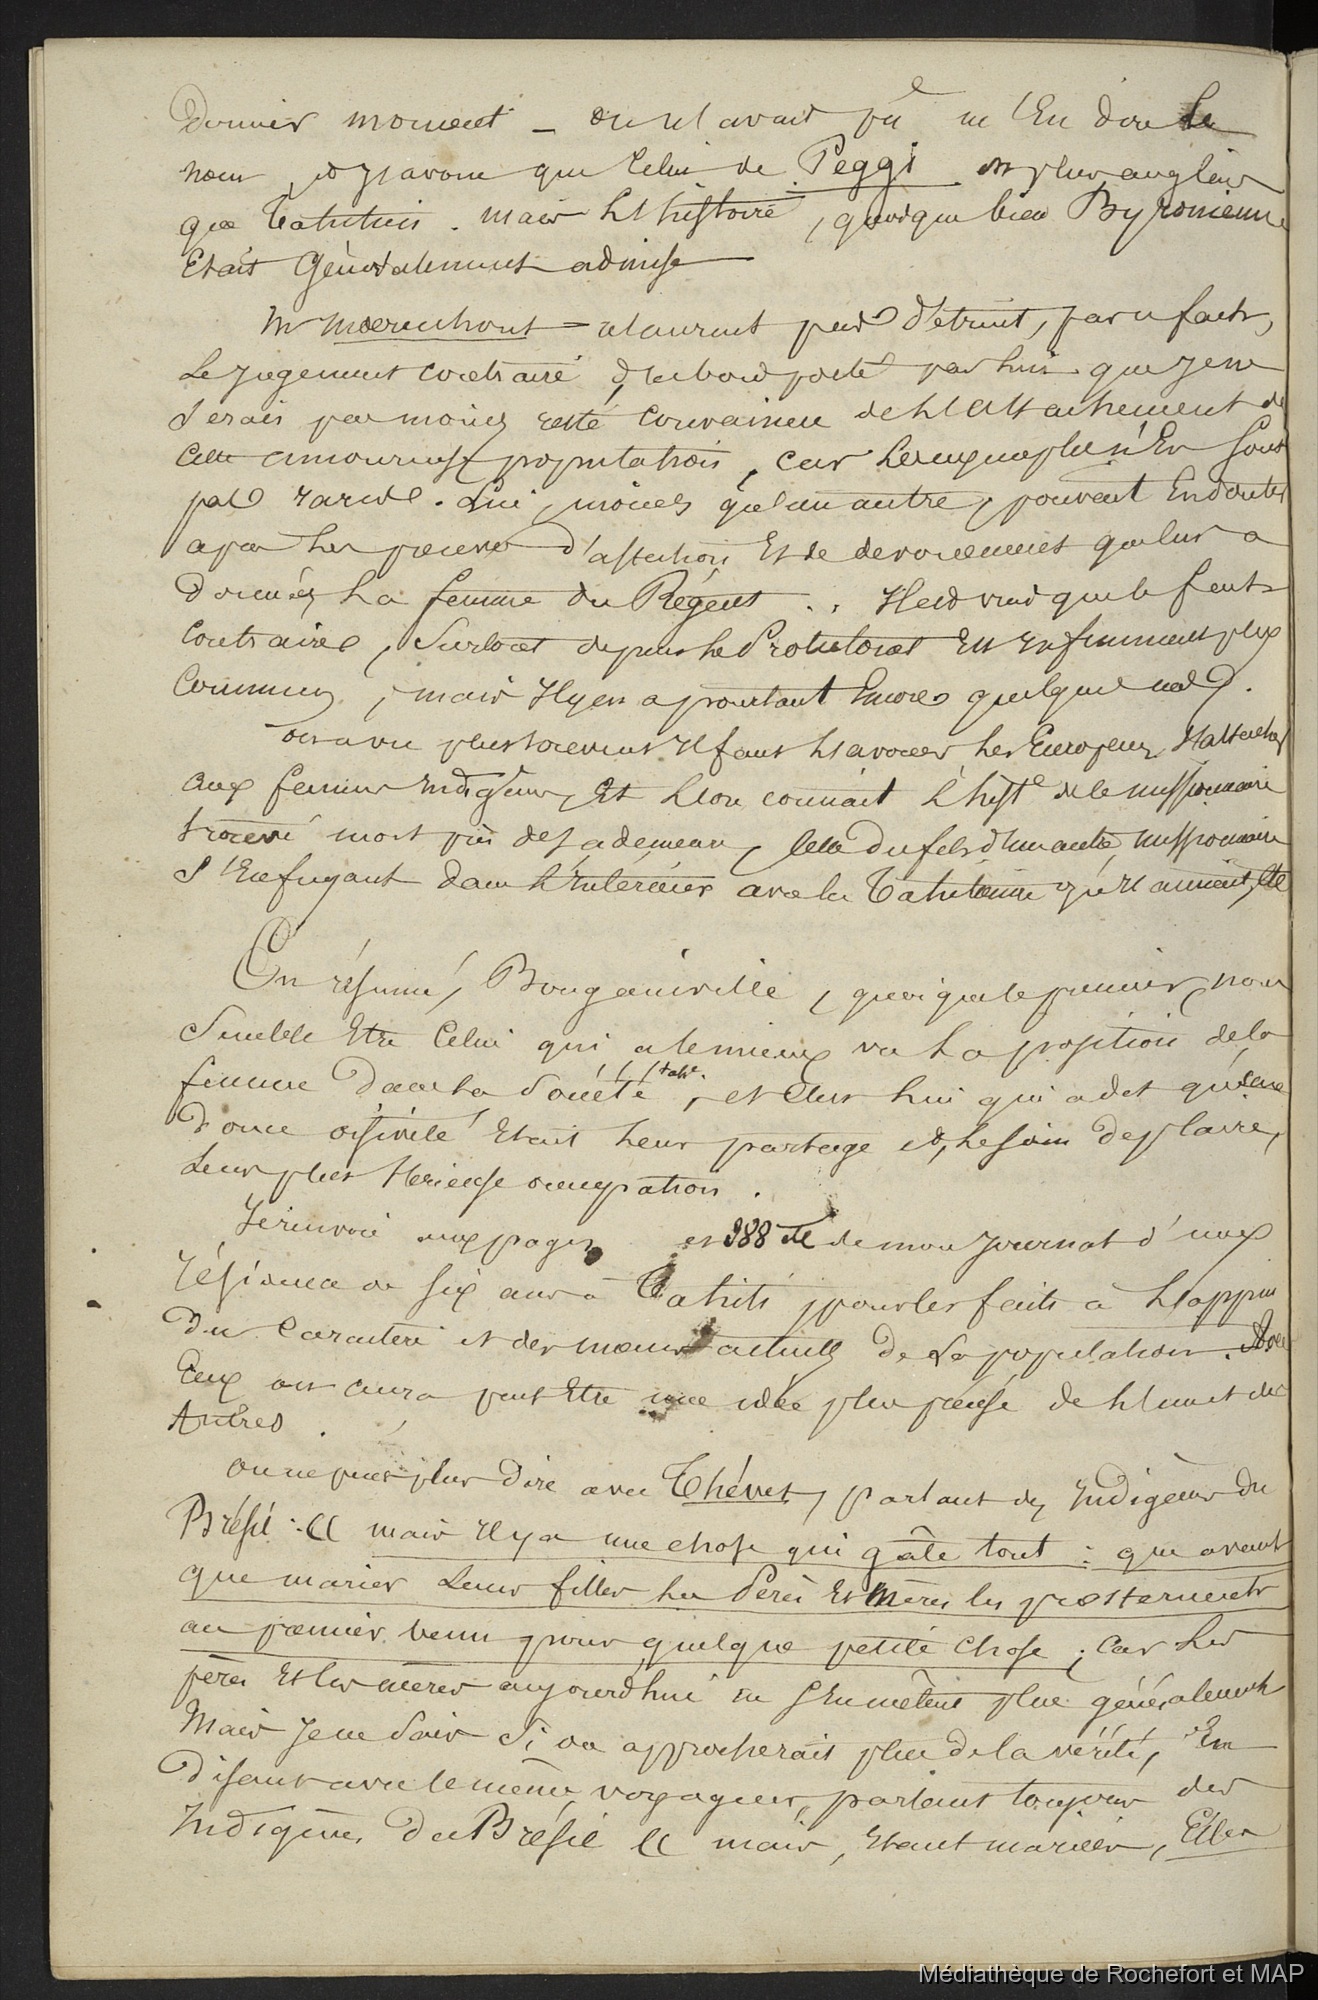 dernier moment _ on n'avait pu m'en dire le
nom, et j'avoue que celui de Peggi est plus anglais
que Tahitien. mais l'histoire, quoique bien Byronienne
Etait Généralement admise
Mr Moerenhout = n'aurait pas détruit, par ce fait,
le jugement contraire d'abord porté par lui que je ne
serais pas moins resté convaincu de l'attachement de
cette amoureuse population, car les exemples n'En sont
pas rares. Lui, moins qu'un autre, pouvait En douter
après les preuves d'affection Et de dévouement que lui a
données La femme du Régent .. Il est vrai que le fait
contraire, surtout depuis le Protectorat Est infiniment plus
commun, mais Il y en a pourtant Encore quelques uns.
on a vu plus souvent Il faut l'avouer les Européens s'attacher
aux femmes Indigènes, Et l'on connait l'histre de ce missionnaire
trouvé mort près de sa demeure, celle du fils d'un autre missionnaire
s'Enfuyant dans l'Intérieur avec la Tahitienne qu'Il aimait, Etc
En résumé, Bougainville, quoique le premier, nous
semble Etre celui qui a le mieux vu la position de la
femme dans la société tahe. ; et c'est lui qui a dit qu'une
douce oisiveté Etait leur partage et, le soin de plaire,
leur plus sérieuse occupation.
Je renvoie aux pages et 388 de mon Journal d'une
résidence de six ans à Tahiti, pour les faits à l'appui
du caractère et des mœurs actuelles de la population. Avec
Eux on aura peut Etre une idée plus précise de l'un et des
Autres.
on ne peut plus dire avec Thévet, parlant des Indigènes du
Brésil : « mais Il y a une chose qui gâte tout : que avant
que marier leurs filles les Pères Et Mères les prosternent
au premier venu pour quelque petite chose ; car les
pères Et les mères aujourd'hui ne s'En mêlent plus généralement
Mais Je ne sais si on approcherait plus de la vérité, En
disant avec le même voyageur, parlant toujours des
Indigènes du Brésil « mais, Etant mariées, Elles